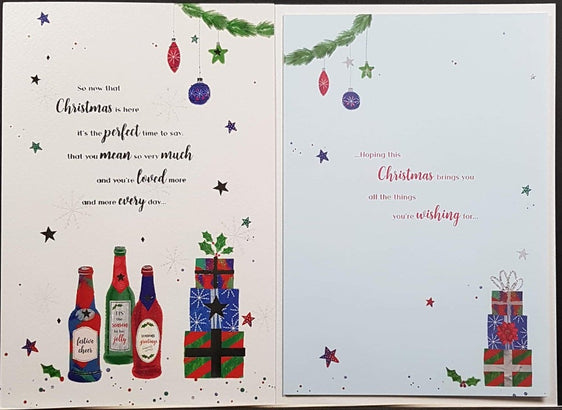 So now that
Christmas is here
it's the perfect time to say,
that you mean so very much
and you're loved more
and more every day...
festive
cheer
TIS
the
season
to be
jolly
seasons
greetings
...Hoping this
Christmas brings you
all the things
you're wishing for...